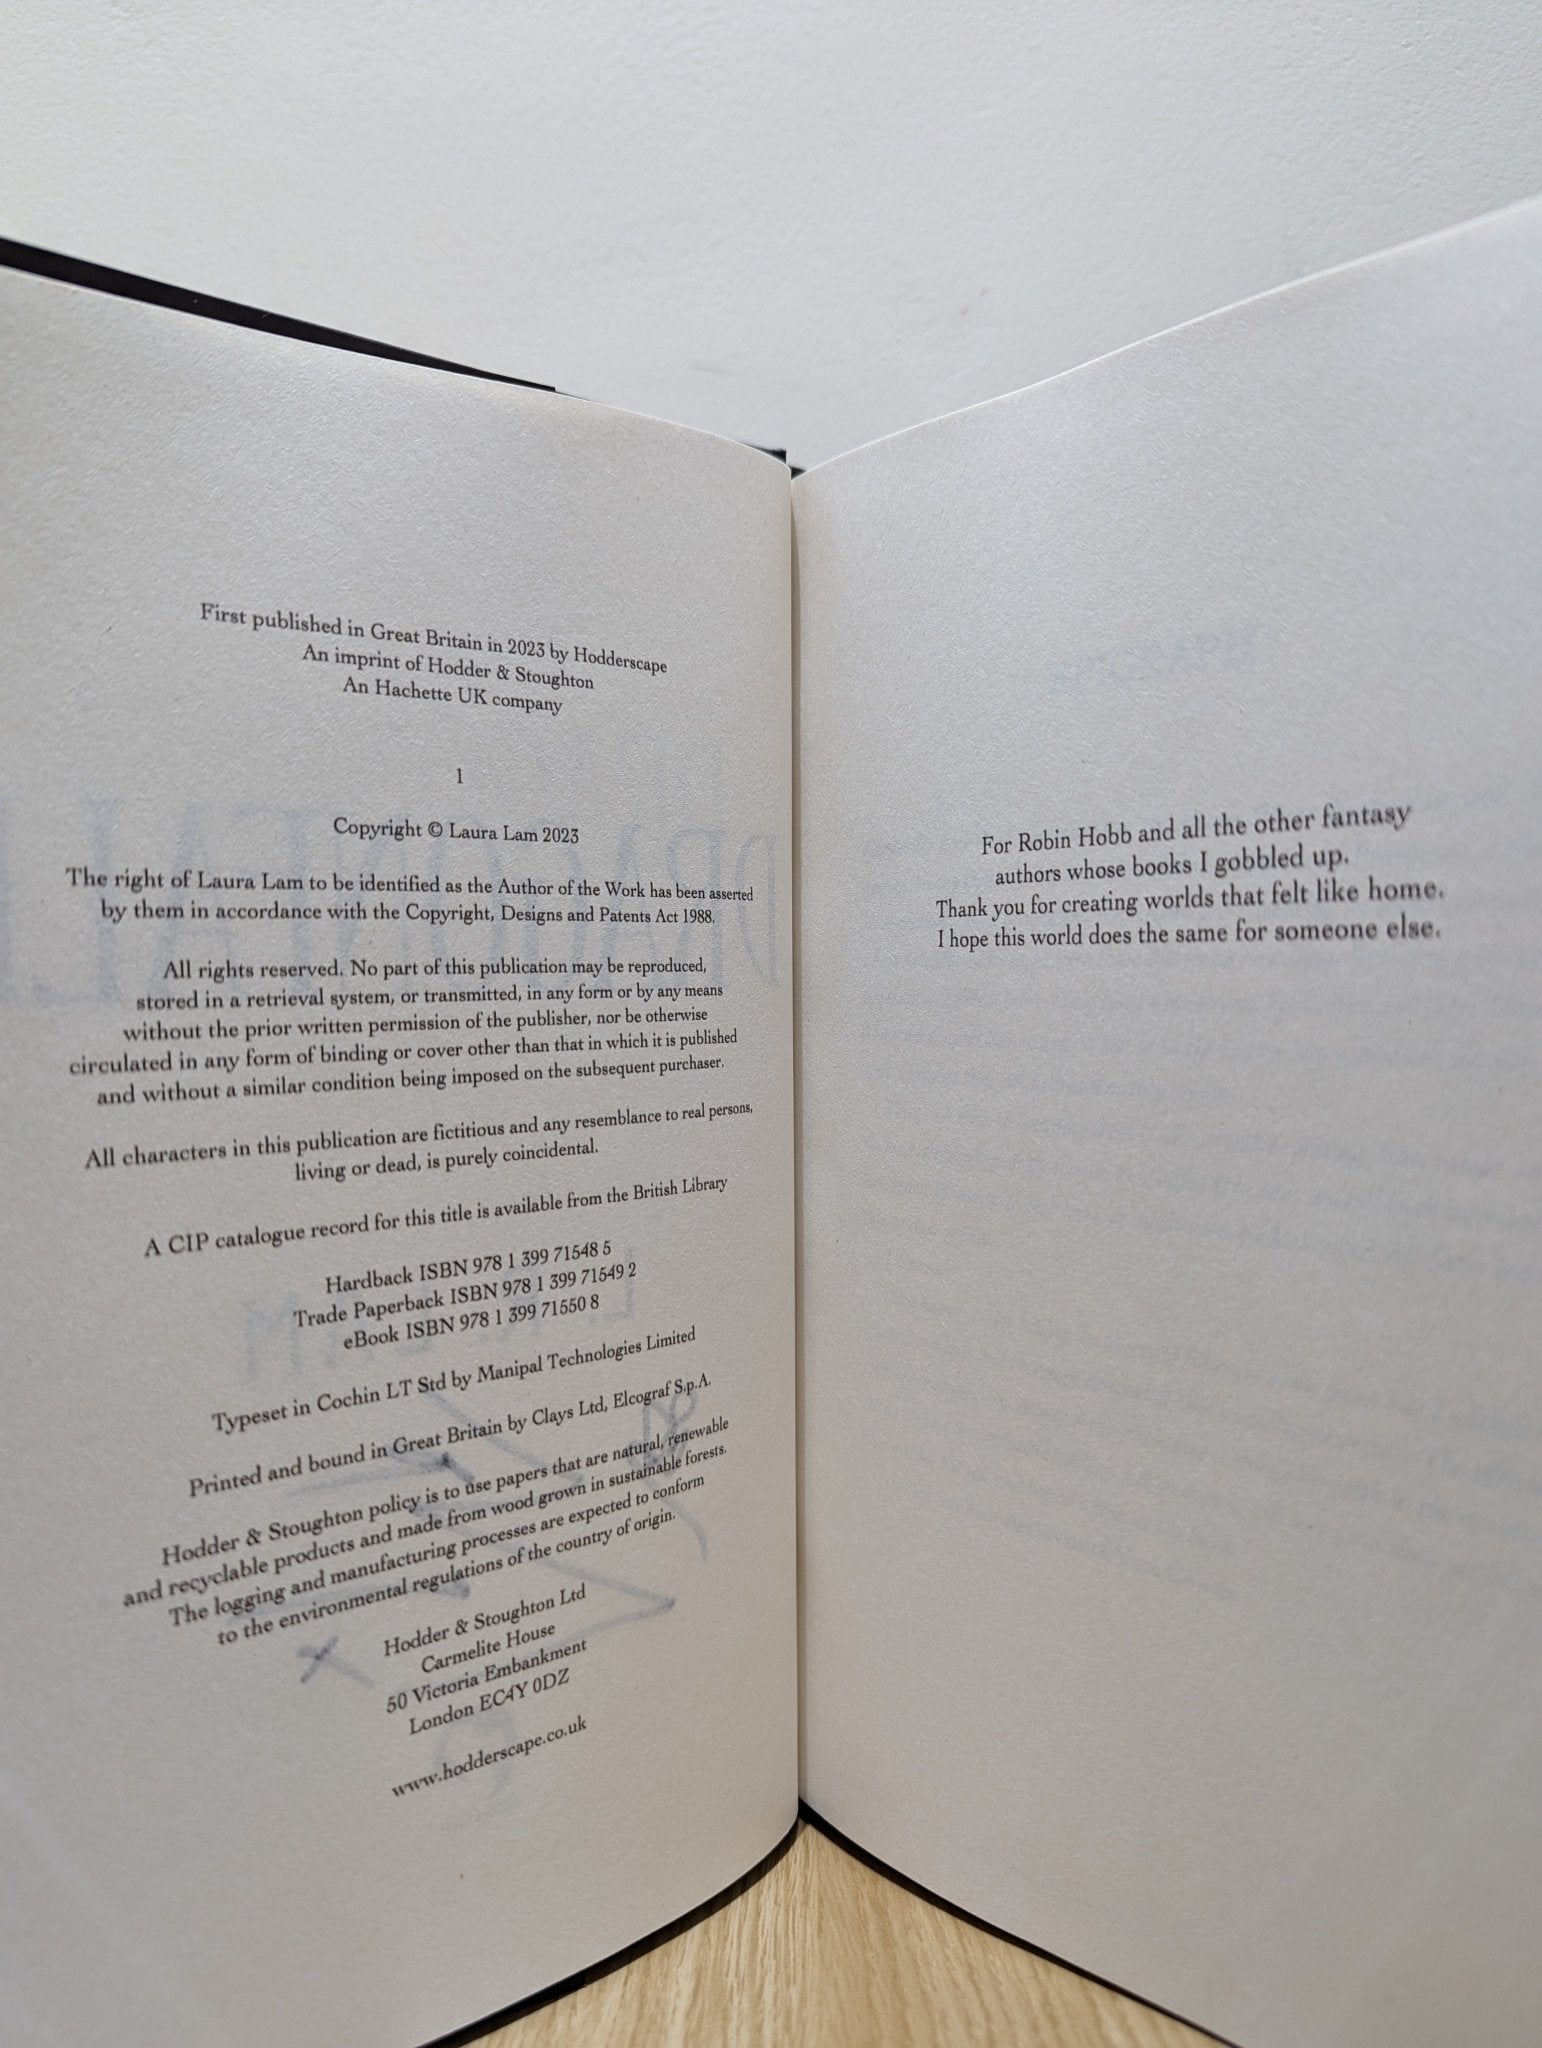 First published in Great Britain in 2023 by Hodderscape
An imprint of Hodder & Stoughton
An Hachette UK company
1
Copyright © Laura Lam 2023
The right of Laura Lam to be identified as the Author of the Work has been asserted
by them in accordance with the Copyright, Designs and Patents Act 1988.
All rights reserved. No part of this publication may be reproduced,
stored in a retrieval system, or transmitted, in any form or by any means
without the prior written permission of the publisher, nor be otherwise
circulated in any form of binding or cover other than that in which it is published
and without a similar condition being imposed on the subsequent purchaser.
All characters in this publication are fictitious and any resemblance to real persons,
living or dead, is purely coincidental.
A CIP catalogue record for this title is available from the British Library
Hardback ISBN 978 1 399 71548 5
Trade Paperback ISBN 978 1 399 71549 2
eBook ISBN 978 1 399 71550 8
Typeset in Cochin LT Std by Manipal Technologies Limited
Printed and bound in Great Britain by Clays Ltd, Elcograf S.p.A.
Hodder & Stoughton policy is to use papers that are natural, renewable
and recyclable products and made from wood grown in sustainable forests.
The logging and manufacturing processes are expected to conform
to the environmental regulations of the country of origin.
Hodder & Stoughton Ltd
Carmelite House
50 Victoria Embankment
London EC4Y 0DZ
www.hodderscape.co.uk
For Robin Hobb and all the other fantasy
authors whose books I gobbled up.
Thank you for creating worlds that felt like home.
I hope this world does the same for someone else.